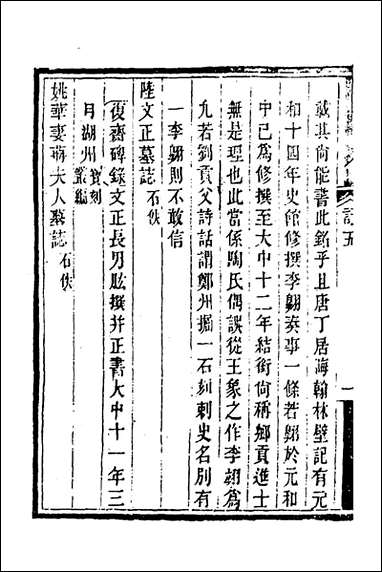 哉其尚能書此銘乎且唐丁居晦翰林壁記有元
和十四年史館修撰李翺奏事一條若翺於元和
中已為修撰至大中十二年結銜尚稱鄉貢進士
無是理也此當係陶氏偶誤從王象之作李翱為
允若劉貢父詩話謂鄭州掘一石刻刺史名別有
一李翺則不敢信
陸文正墓誌 石佚
復齋碑錄文正長男肱撰并正書大中十一年三
月湖州 寶刻叢編
姚華妻蔣夫人墓誌 石佚